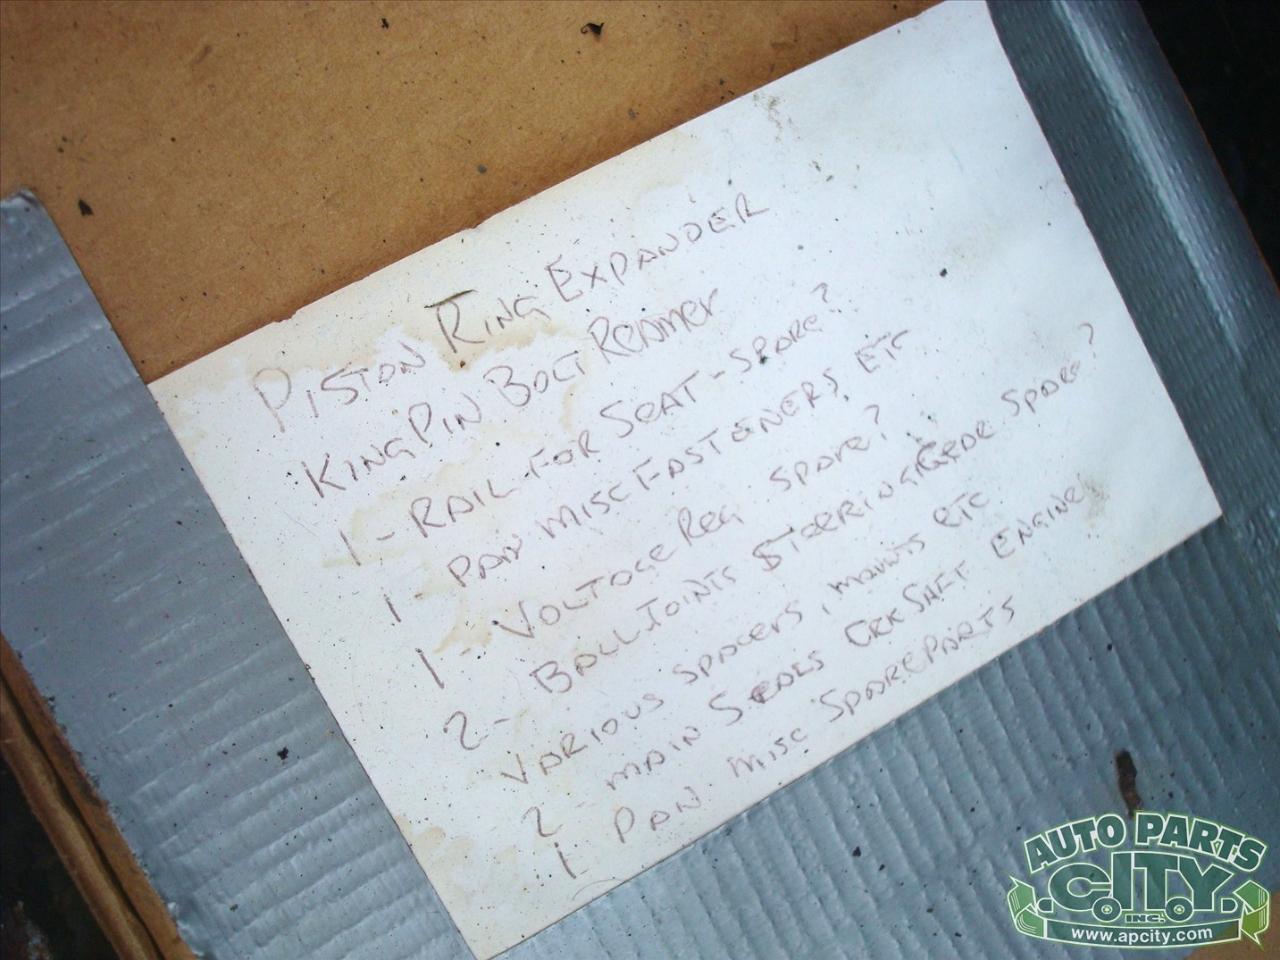 PISTON RING EXPANDER
KING PIN BOLT REAMER
1 - RAIL FOR SEAT - SPARE?
1 PAN MISC FASTENERS, ETC
1 - VOLTAGE REG SPARE?
2 - BALL JOINTS STEERING GEAR SPARE?
VARIOUS SPACERS, MOUNTS ETC
2 - MAIN SEALS CRKSHFT ENGINE
1 PAN MISC SPARE PARTS
AUTO PARTS
CITY
INC.
www.apcity.com